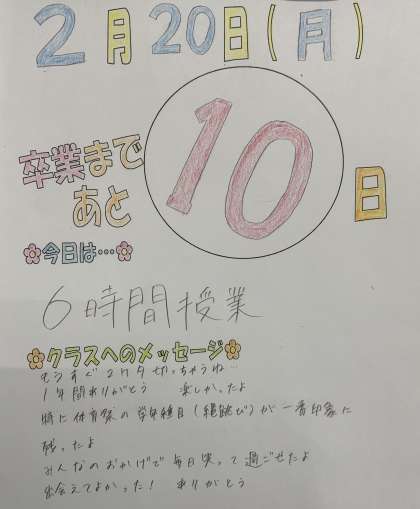 2月20日(月)
卒業まで
あと
10
日
今日は…
6時間授業
クラスへのメッセージ
もうすぐ2ケタ切っちゃうね…
1年間ありがとう 楽しかったよ
特に体育祭の学年種目(縄跳び)が一番印象に
残ったよ
みんなのおかげで毎日笑って過ごせたよ
出会えてよかった! ありがとう